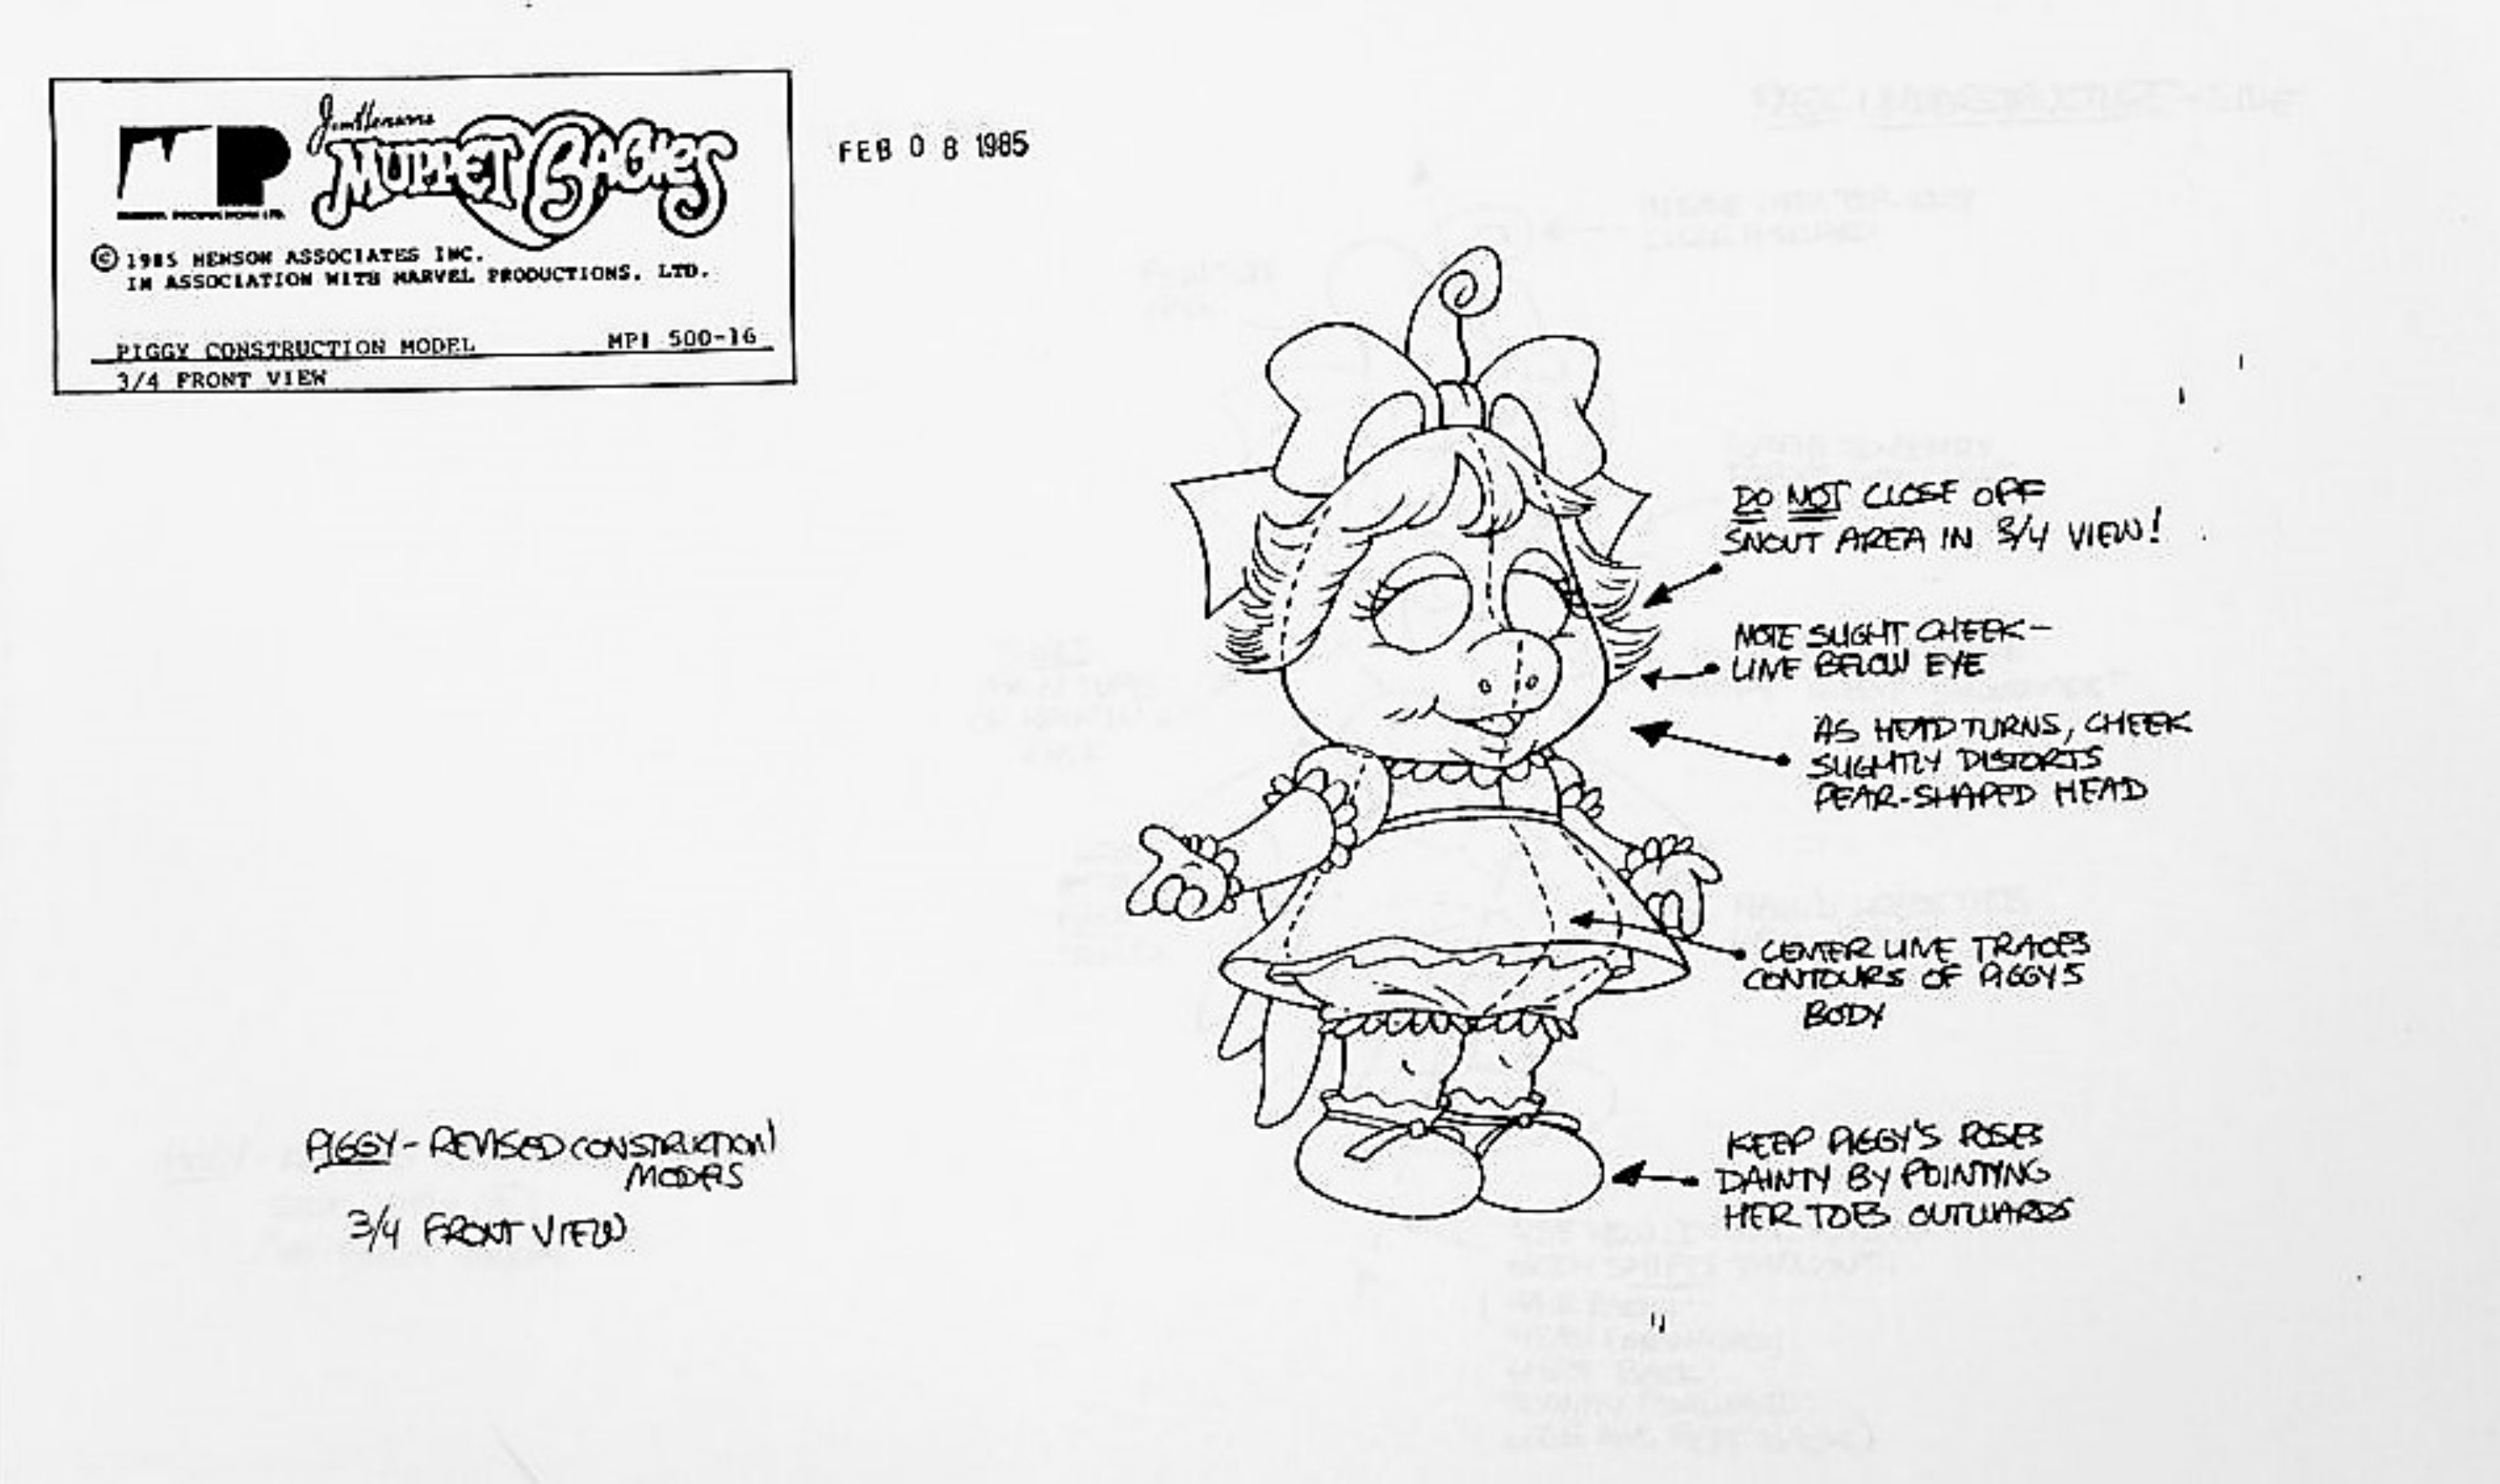 Jim Henson's
MUPPET BABIES
MP
© 1985 HENSON ASSOCIATES INC.
IN ASSOCIATION WITH MARVEL PRODUCTIONS, LTD.
PIGGY CONSTRUCTION MODEL MPI 500-16
3/4 FRONT VIEW
FEB 08 1985
DO NOT CLOSE OFF
SNOUT AREA IN 3/4 VIEW!
NOTE SLIGHT CHEEK-
LINE BELOW EYE
AS HEAD TURNS, CHEEK
SLIGHTLY DISTORTS
PEAR-SHAPED HEAD
CENTER LINE TRACES
CONTOURS OF PIGGYS
BODY
KEEP PIGGY'S POSES
DAINTY BY POINTING
HER TOES OUTWARDS
PIGGY - REVISED CONSTRUCTION
MODELS
3/4 FRONT VIEW